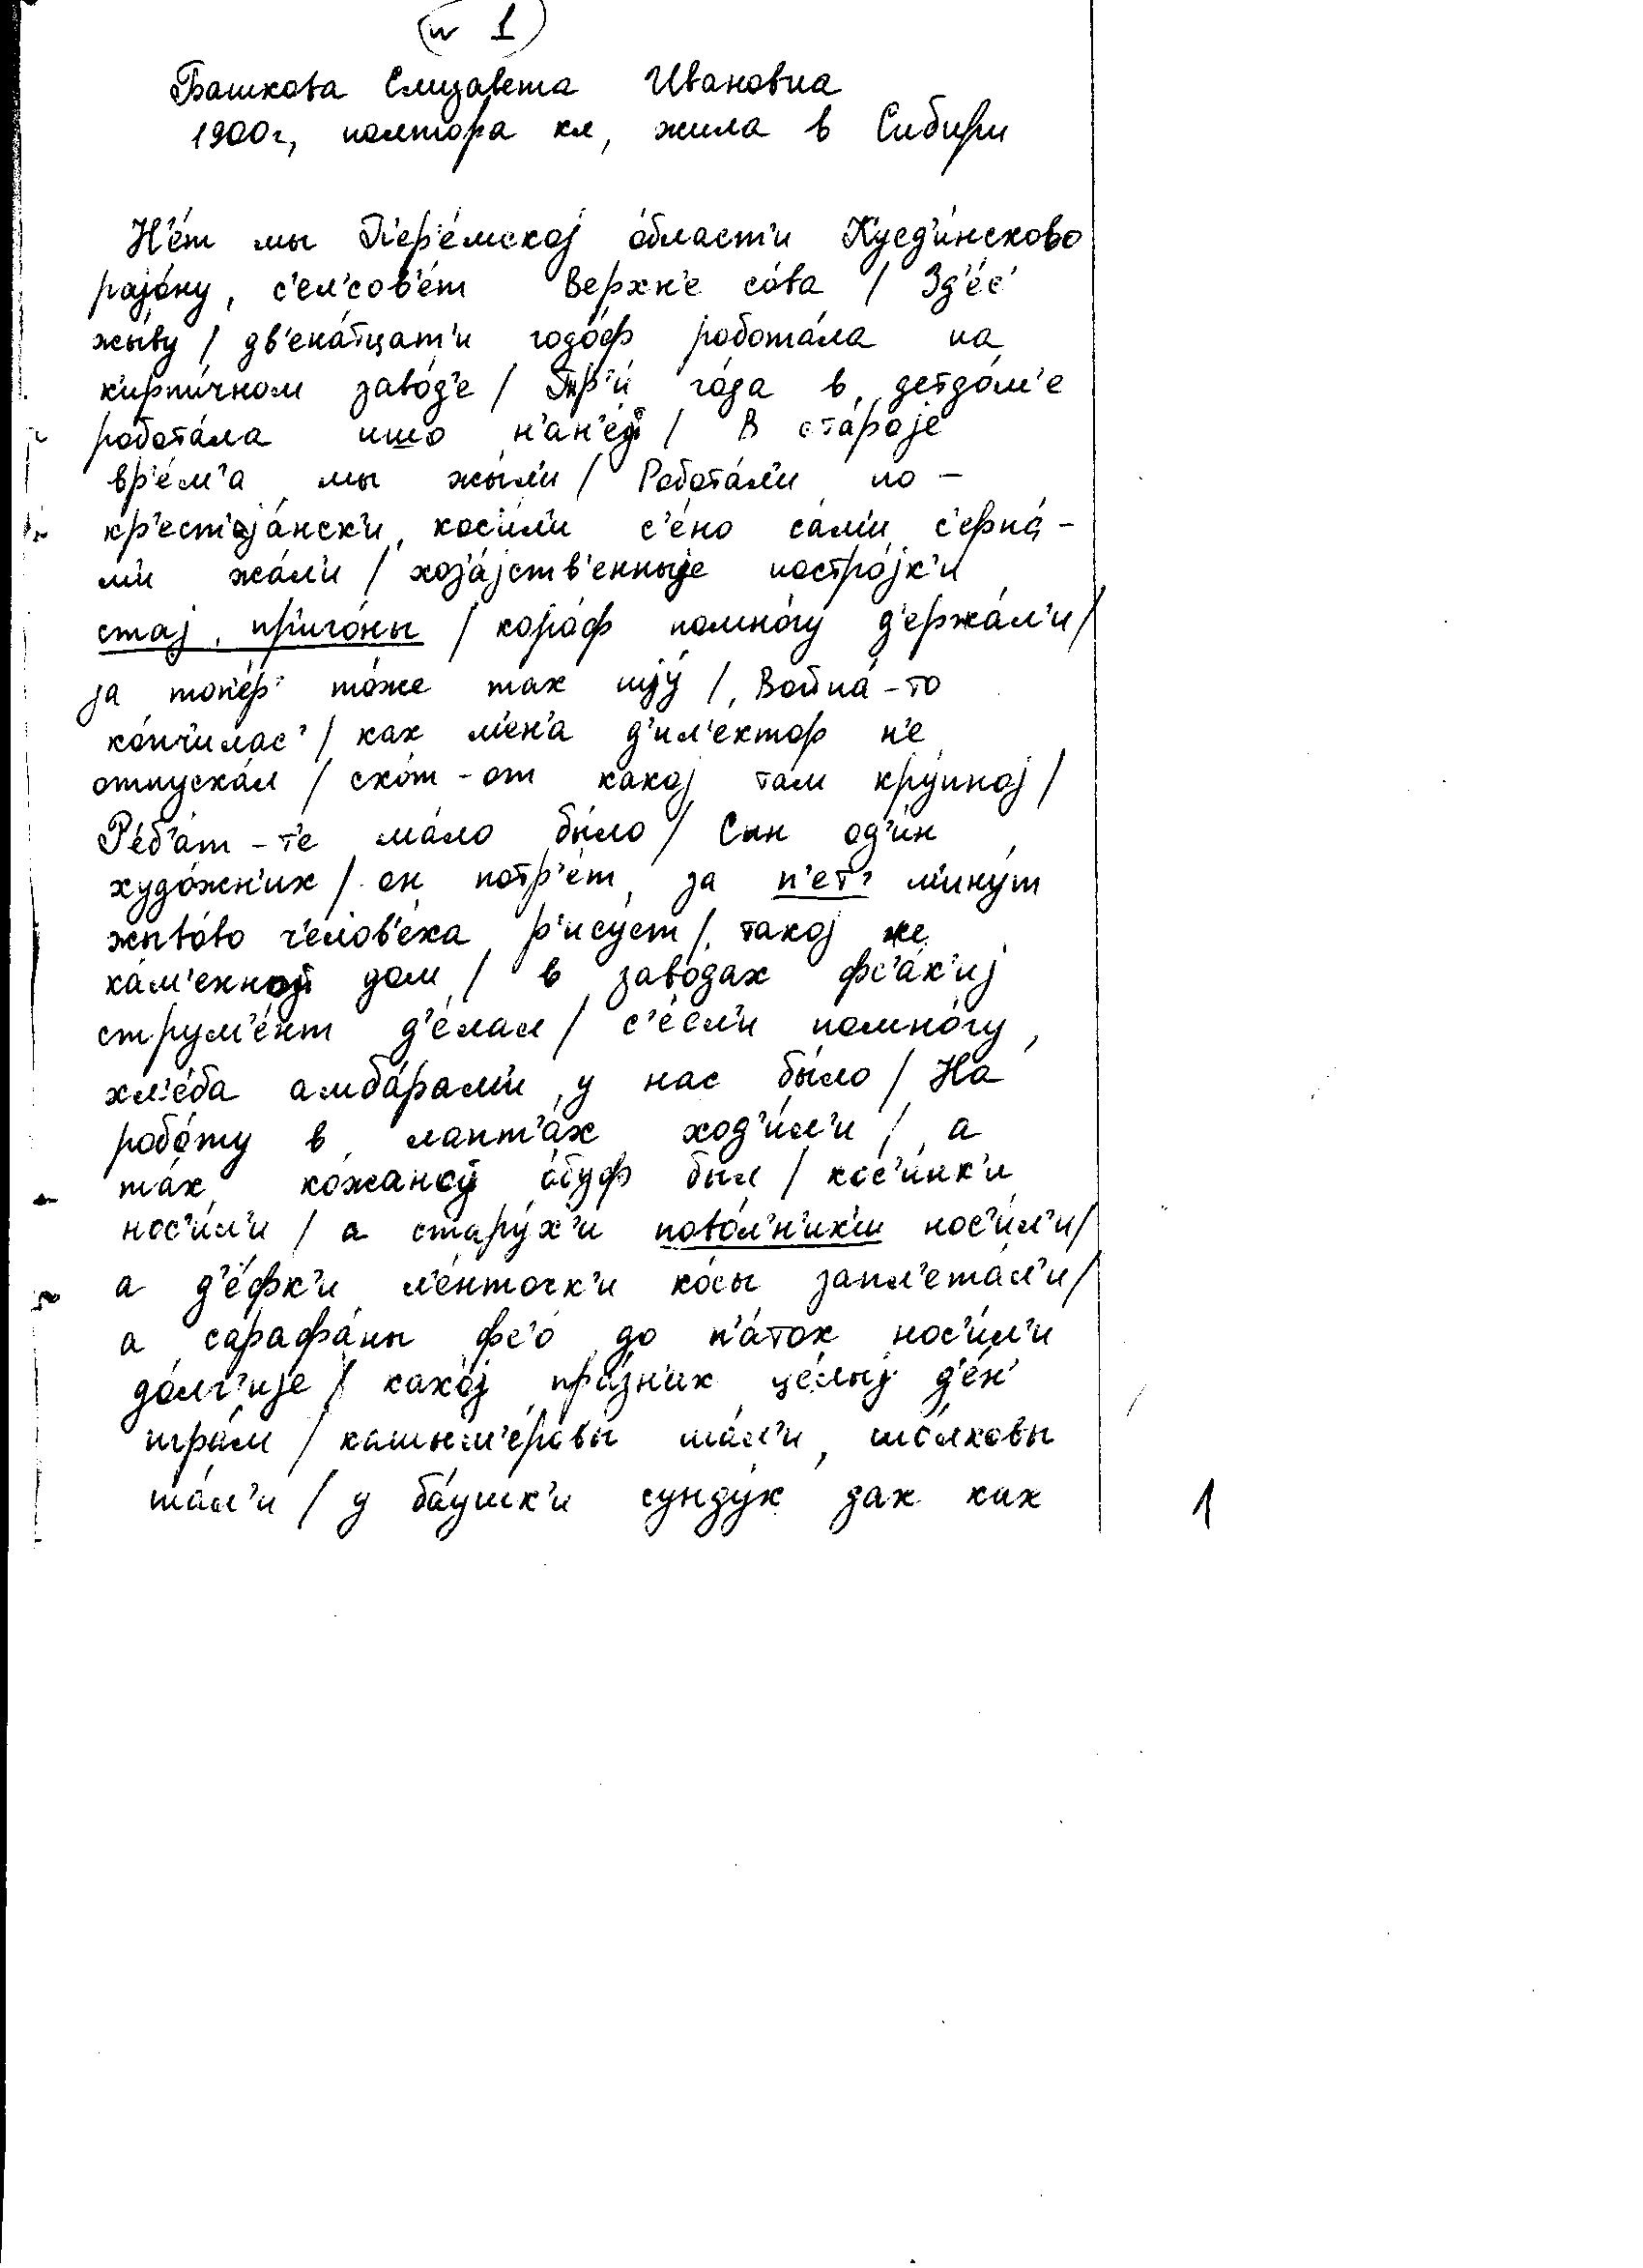 (н 1)
Башкова Елизавета Ивановна
1900г, полтора кл, жила в Сибири
Н'е́т мы П'ер'е́мскоj о́бласт'и Куед'и́нсково
раjо́ну, с'ел'сов'е́т Верхн'е со́ва / Зд'е́с'
жы́ву / дв'ена́тцат'и годо́ф робота́ла на
к'ирпи́чном заво́д'е / Тр'и́ го́да в детдо́м'е
робота́ла ишо н'ан'еj / В ста́роjе
вр'е́м'а мы жы́л'и / Робота́л'и по-
кр'ест'jа́нск'и, кос'и́л'и с'е́но са́м'и, с'ерпа́-
м'и жа́л'и / хоз'а́jств'енныjе постро́jк'и
стаj, пр'иго́ны / коро́ф помно́гу д'ержа́л'и /
jа топ'е́р' то́же так шjу́ / Война́-то
ко́нч'илас' / как м'ен'а́ д'ил'ектор н'е
отпуска́л / ско́т-от какоj та́м кру́пноj /
Р'еб'а́т-т'е ма́ло бы́ло / Сын од'и́н
худо́жн'ик / он потр'е́т за п'ет' м'ину́т
жыво́во ч'елов'е́ка р'ису́ет / такоj же
ка́м'енноj дом / в заво́дах фс'а́к'иj
струм'е́нт д'е́лал / с'е́ел'и помно́гу,
хл'е́ба амба́рам'и у нас бы́ло / На
робо́ту в лапт'а́х ход'и́л'и / а
та́к ко́жаноj о́буф был / кос'и́нк'и
нос'и́л'и / а стару́х'и пово́йн'ик'и нос'и́л'и /
а д'е́фк'и л'е́нточк'и ко́сы запл'ета́л'и /
а сарафа́ны фс'о́ до п'а́ток нос'и́л'и
до́лг'иjе / како́j пра́зн'ик це́лыj д'е́н'
игра́м / кашем'е́ровы ша́л'и, шо́лковы
ша́л'и / у ба́ушк'и сунду́к дак как
1